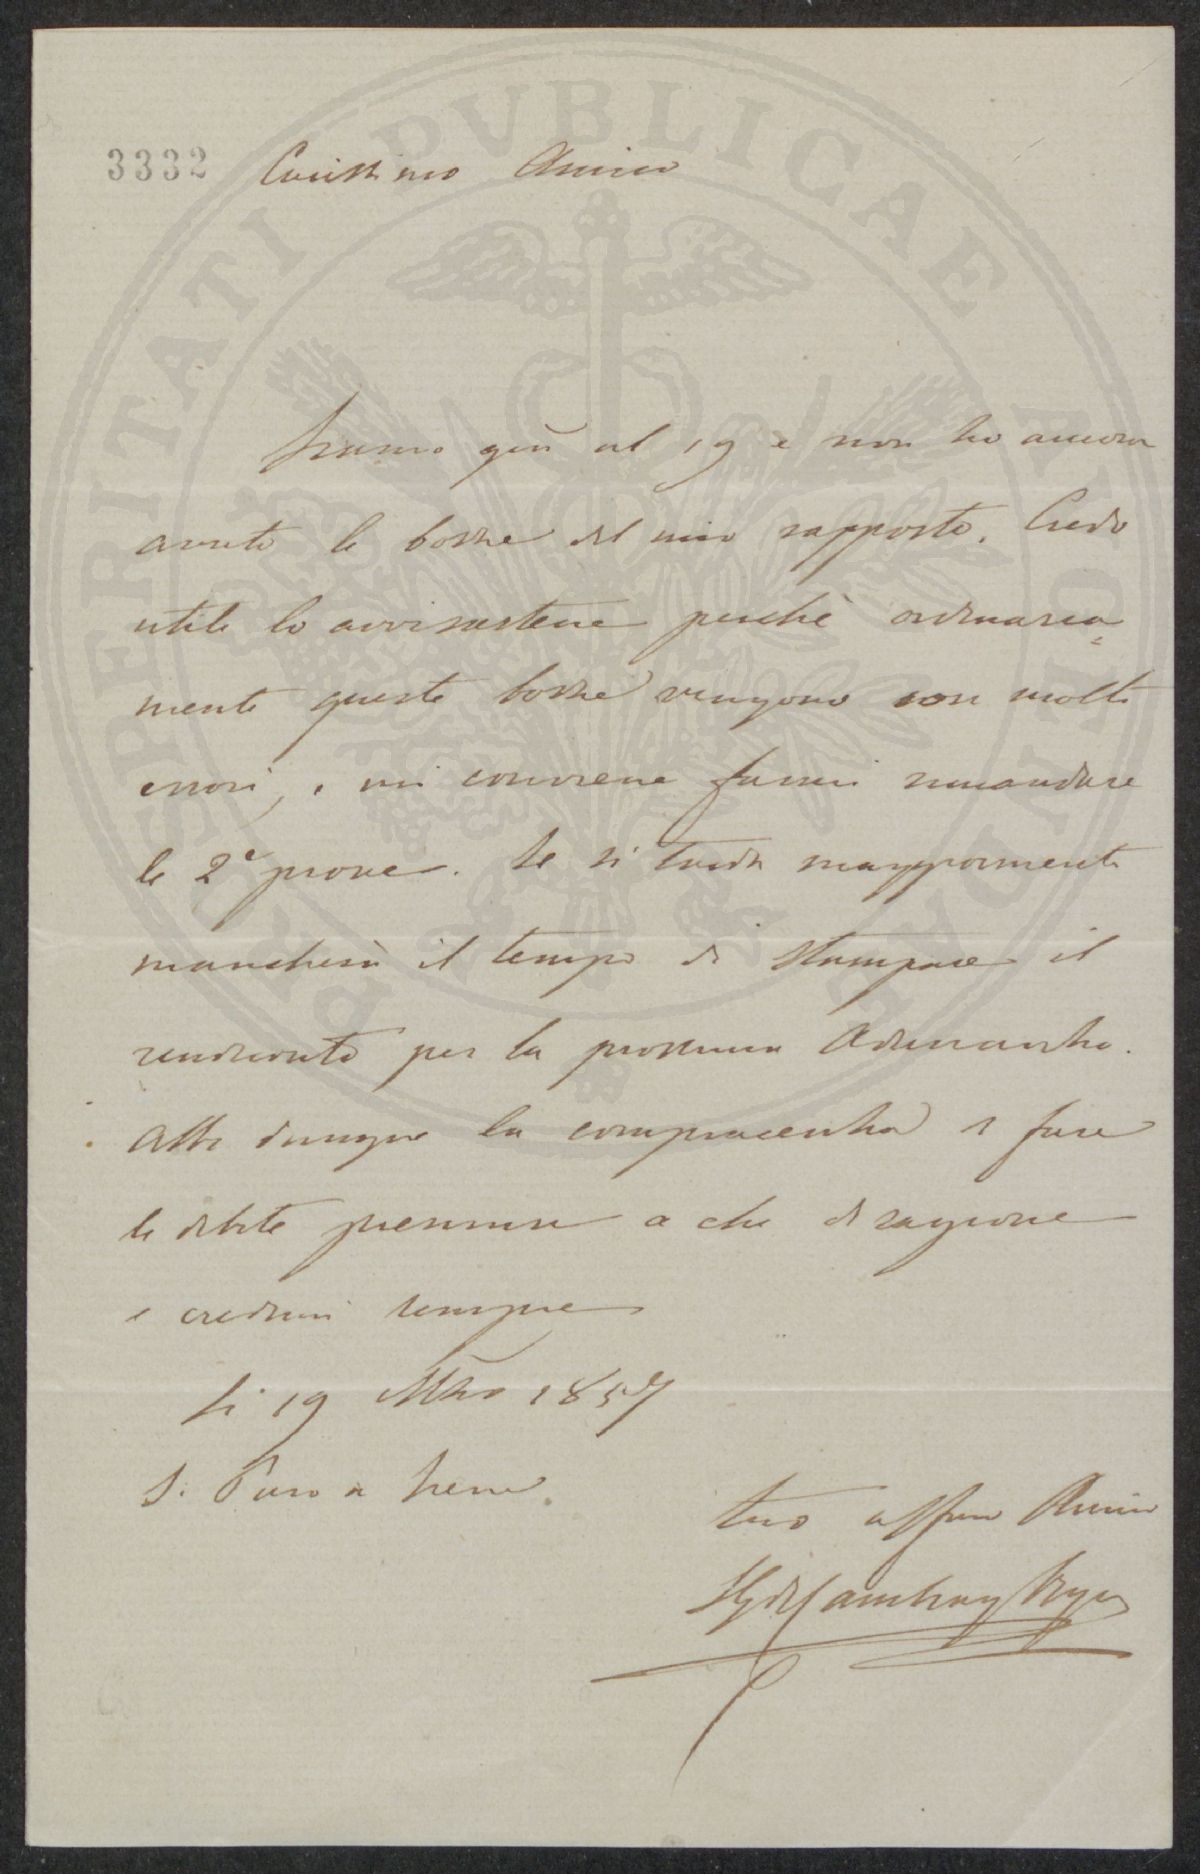 3332 Carissimo Amico
Siamo già al 19 e non ho ancora
avuto le bozze del mio rapporto. Credo
utile lo avvisartene perchè ordinaria=
mente queste bozze vengono con molti
errori, e mi conviene farmi rimandare
le 2e prove. Se si tarda maggiormente
mancherà il tempo di stampare il
rendiconto per la prossima Adunanza.
Abbi dunque la compiacenza di fare
le debite premure a chi di ragione
e credimi sempre
Li 19 Mzo 1857
S. Piero a Sieve.
tuo affmo Amico
Cambray Digny
PROSPERITATI PVBLICAE AVGENDAE